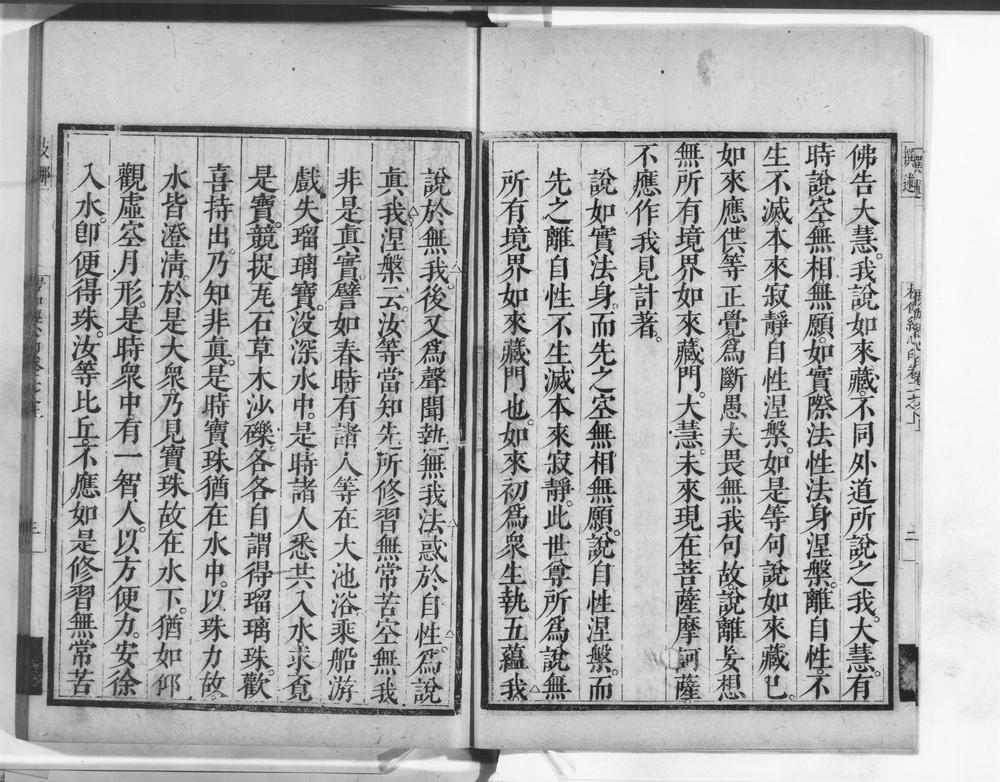 佛告大慧。我說如來藏。不同外道所說之我。大慧。有
時說空。無相。無願。如實際法性法身涅槃。離自性。不
生不滅本來寂靜自性涅槃。如是等句說如來藏已。
如來應供。等正覺爲斷愚夫畏無我句故。說離妄想
無所有境界如來藏門。大慧。未來現在菩薩摩訶薩
不應作我見計著。
說如實法身。而先之空無相無願。說自性涅槃。而
先之離自性不生滅本來寂靜。此世尊所爲說無
所有境界如來藏門也。如來初爲衆生執五蘊我
說於無我。後又爲聲聞執無我法惑於自性。爲說
眞我涅槃云。汝等當知先所修習無常苦空無我
非是眞實。譬如春時有諸人等在大池浴乘船游
戲失瑠璃寶。沒深水中。是時諸人悉共入水求覓
是寶。競捉瓦石草木沙礫。各各自謂得瑠璃珠。歡
喜持出。乃知非眞。是時寶珠猶在水中。以珠力故。
水皆澄淸。於是大衆。乃見寶珠故在水下。猶如仰
觀虛空月形。是時衆中有一智人。以方便力。安徐
入水。卽便得珠。汝等比丘。不應如是修習無常苦